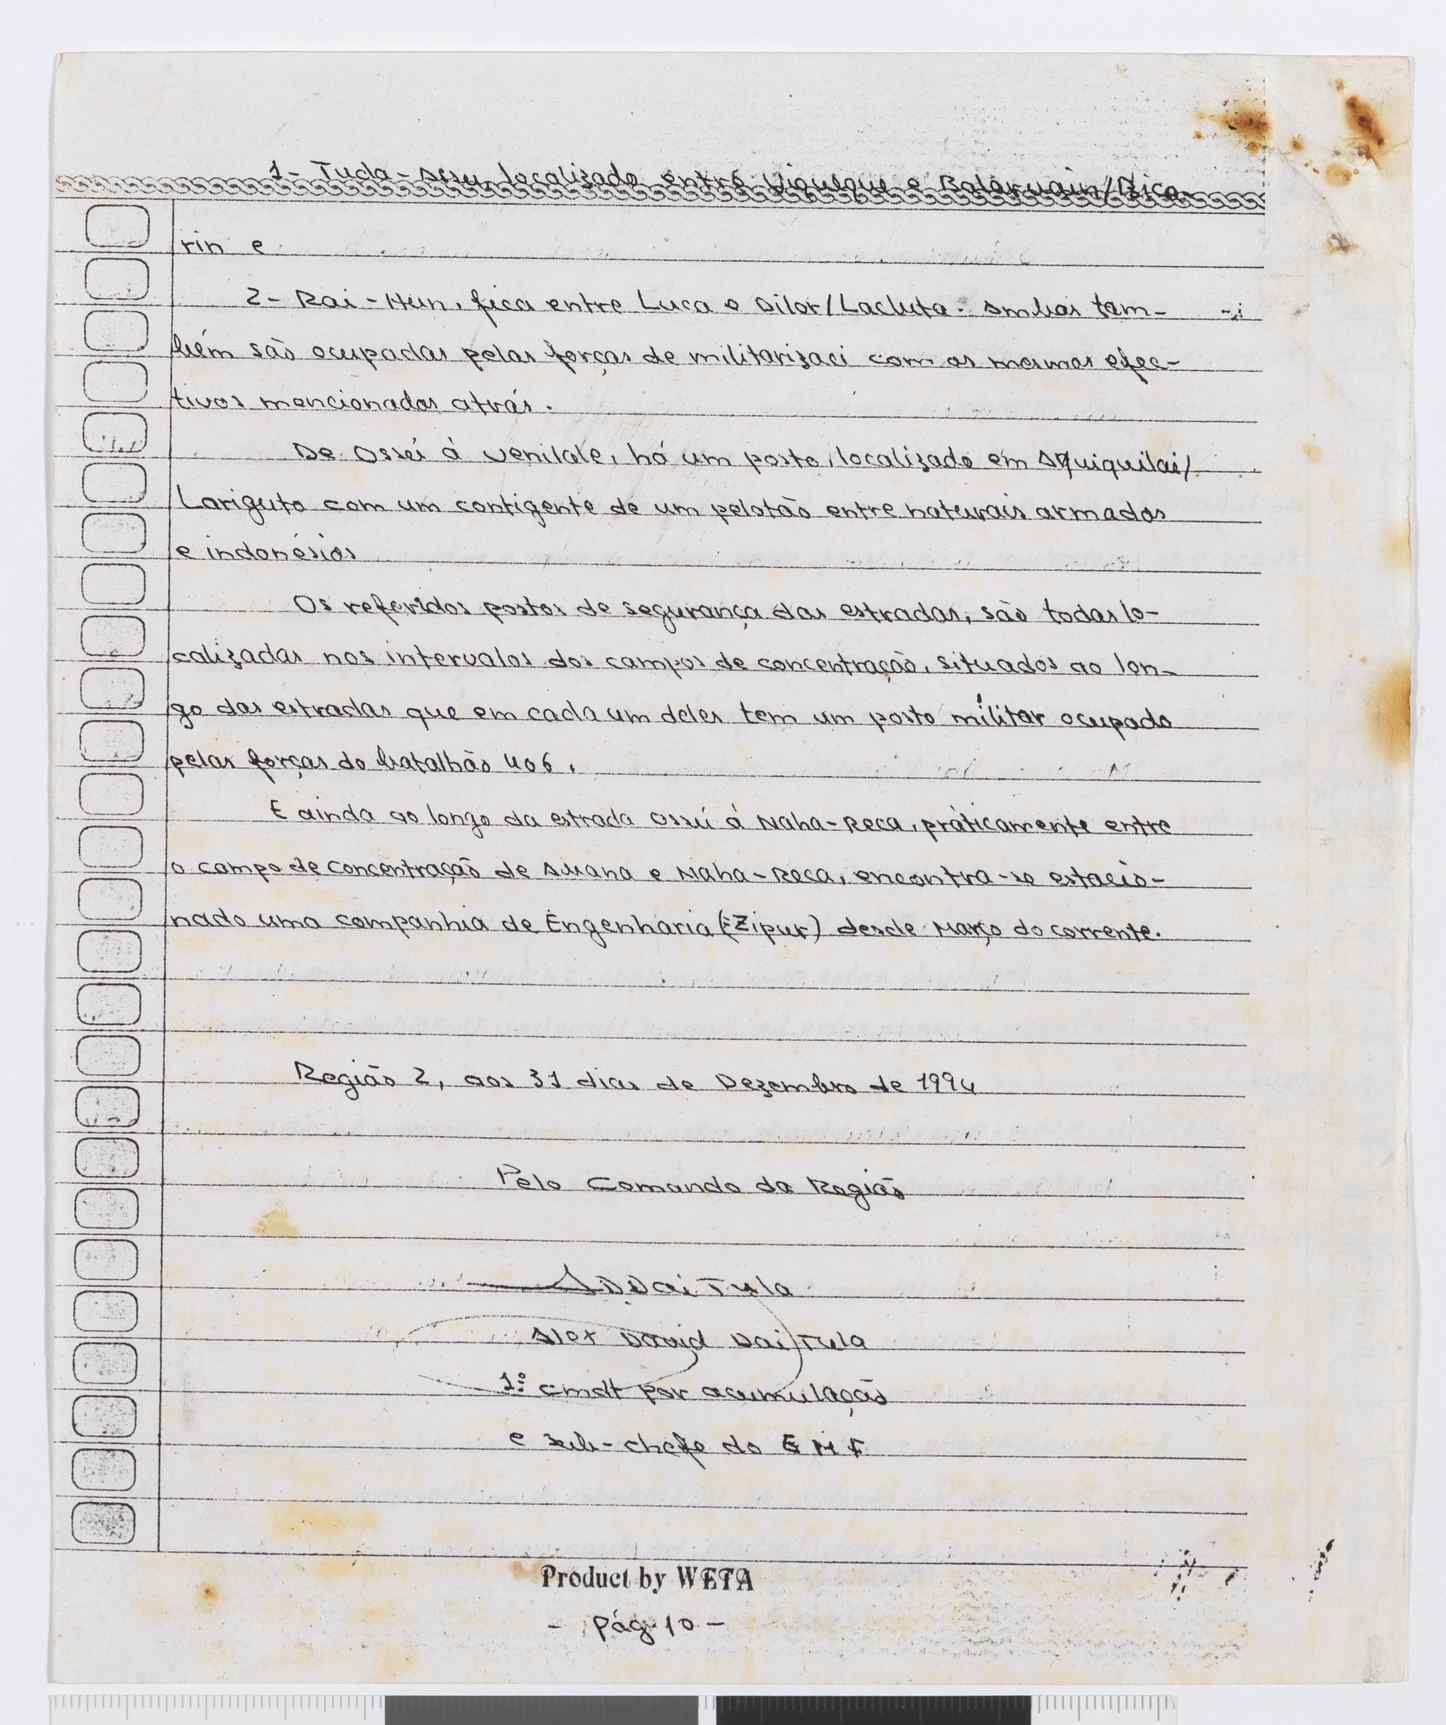 1- Tuda-Seu, localizado entre Viqueque e Balarauain/Bica
rin e
2- Rai-Hun, fica entre Luca e Dilor/Lacluta. Ambos tam-
bém são ocupadas pelas forças de militarizaci com os mesmos efec-
tivos mencionados atrás.
De Ossú à Venilale, há um posto, localizado em Aquiquilai/
Lariguto com um contigente de um pelotão entre naturais armados
e indonésios
Os referidos postos de segurança das estradas, são todas lo-
calizadas nos intervalos dos campos de concentração, situados ao lon-
go das estradas que em cada um deles tem um posto militar ocupado
pelas forças do batalhão 406.
E ainda ao longo da estrada Ossú á Naha-Reca, práticamente entre
o campo de concentração de Auana e Naha-Reca, encontra-se estacio-
nado uma companhia de Engenharia (Ezipur) desde Março do corrente.
Região 2, aos 31 dias de Dezembro de 1994
Pelo Comando da Região
ADDai Tula
Alex David DaiTula
1º cmdt por acumulação
e sub-chefe do E M F
Product by WETA
- Pág 10 -